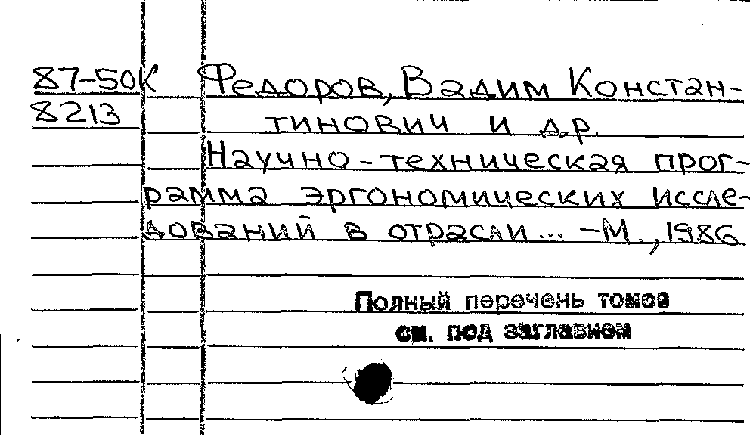 87-50К Федоров, Вадим Констан-
8213 тинович и др.
Научно-техническая прог-
рамма эргономических иссле-
дований в отрасли... -М., 1986
Полный перечень томов
см. под заглавием